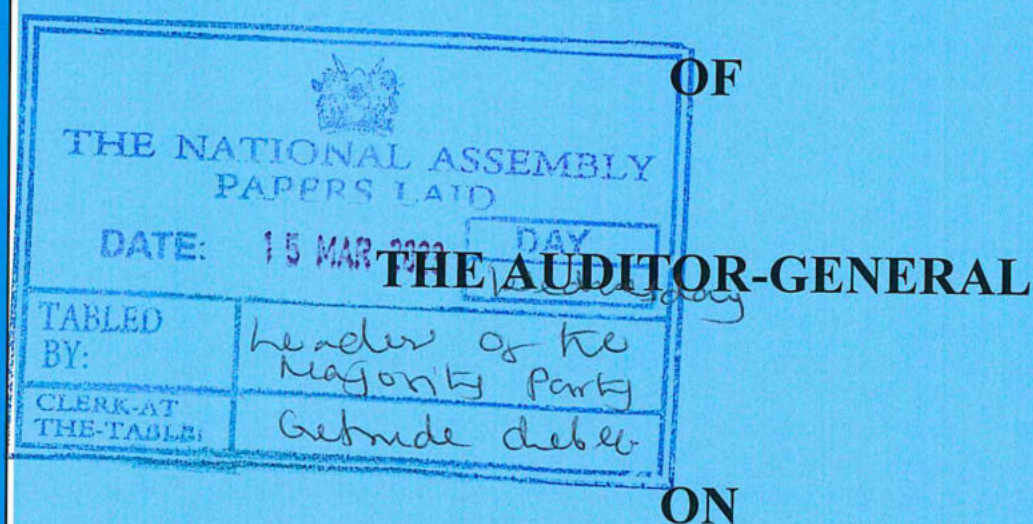 OF
THE NATIONAL ASSEMBLY
PAPERS LAID
DATE: 15 MAR DAY
THE AUDITOR-GENERAL
Wednesday
TABLED BY: Leader of the Majority Party
CLERK-AT THE-TABLE: Getrude
ON